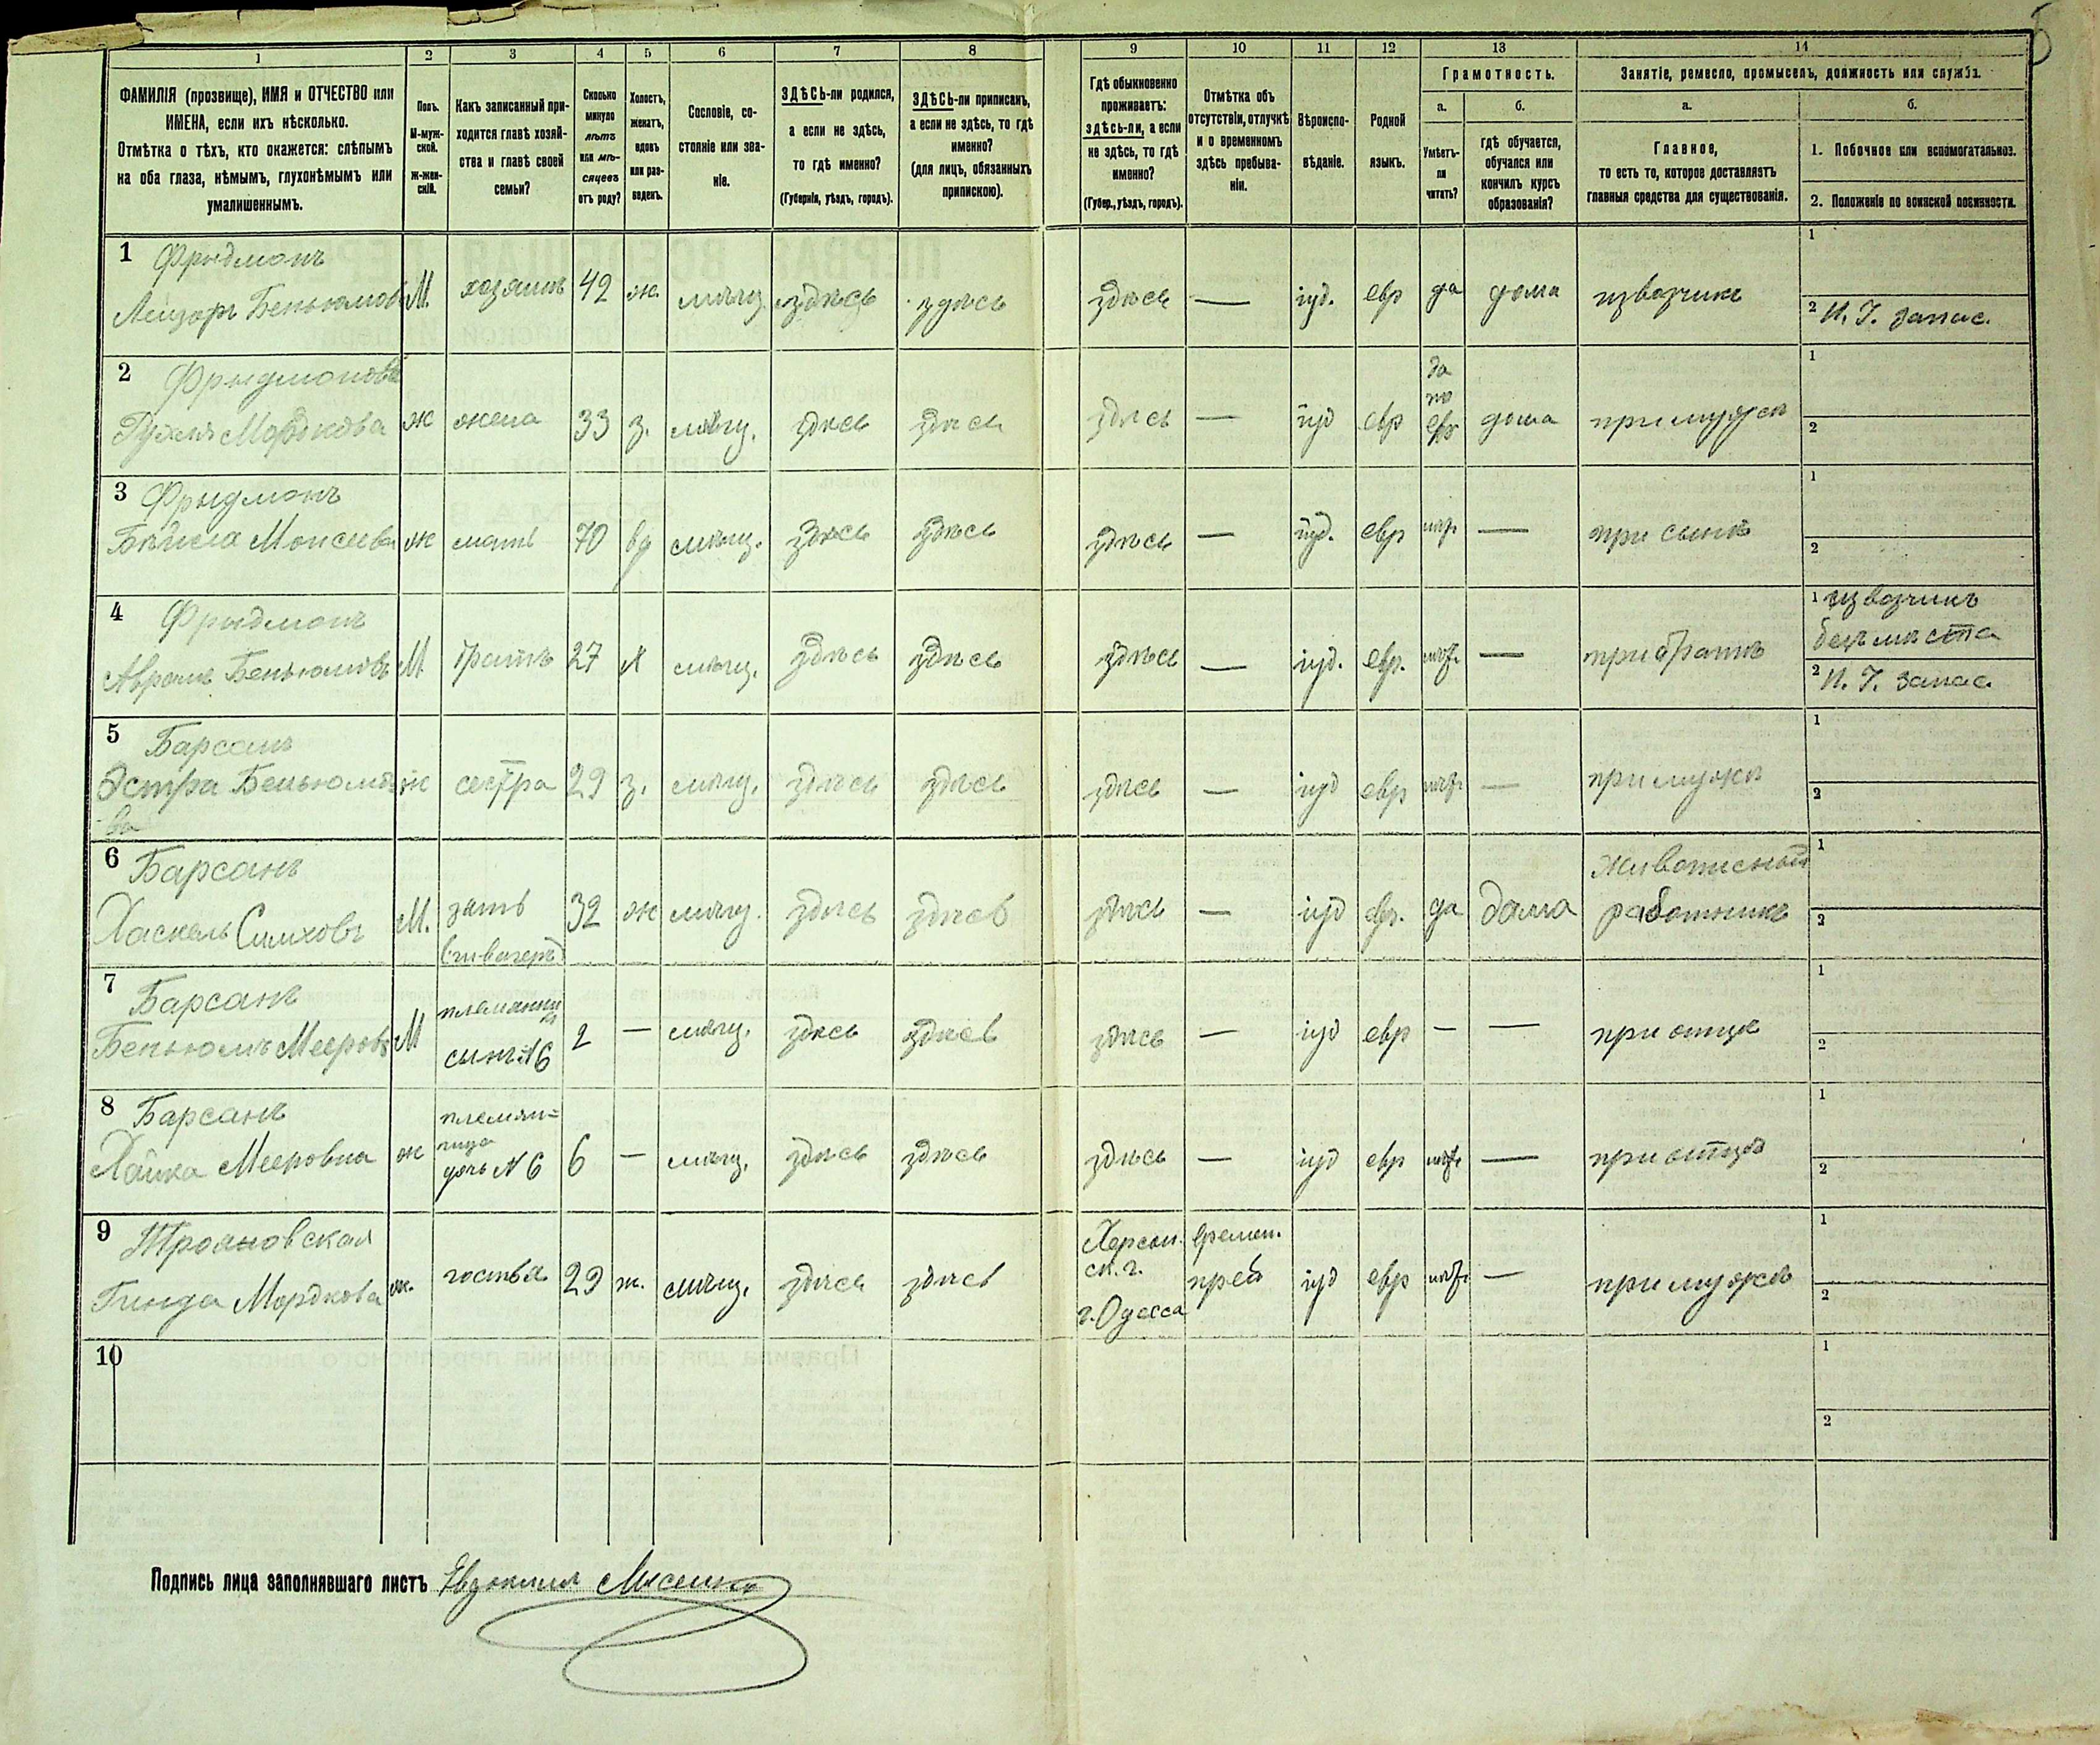 1
2
3
4
5
6
7
8
9
10
11
12
13
14
ФАМИЛІЯ (прозвище), ИМЯ и ОТЧЕСТВО или
ИМЕНА, если ихъ нѣсколько.
Отмѣтка о тѣхъ, кто окажется: слѣпымъ
на оба глаза, нѣмымъ, глухонѣмымъ или
умалишеннымъ.
Полъ.
М-муж-
ской.
ж-жен-
скій.
Какъ записанный при-
ходится главѣ хозяй-
ства и главѣ своей
семьи?
Сколько
минуло
лѣтъ
или мѣ-
сяцевъ
отъ роду?
Холостъ,
женатъ,
вдовъ
или раз-
веденъ.
Сословіе, со-
стояніе или зва-
ніе.
ЗДѢСЬ-ли родился,
а если не здѣсь,
то гдѣ именно?
(Губернія, уѣздъ, городъ).
ЗДѢСЬ-ли приписанъ,
а если не здѣсь, то гдѣ
именно?
(для лицъ, обязанныхъ
припискою).
Гдѣ обыкновенно
проживаетъ:
здѣсь-ли, а если
не здѣсь, то гдѣ
именно?
(Губер., уѣздъ, городъ).
Отмѣтка объ
отсутствіи, отлучкѣ
и о временномъ
здѣсь пребыва-
ніи.
Вѣроиспо-
вѣданіе.
Родной
языкъ.
Грамотность.
а.
Умѣетъ-
ли
читать?
б.
гдѣ обучается,
обучался или
кончилъ курсъ
образованія?
Занятіе, ремесло, промыселъ, должность или служба.
а.
Главное,
то есть то, которое доставляетъ
главныя средства для существованія.
б.
1. Побочное или вспомогательное.
2. Положеніе по воинской повинности.
1 Фридманъ
Лейзоръ Беньюмовъ М. хозяинъ 42 ж. мѣщ. здѣсь здѣсь здѣсь — іуд. евр да дома извозчикъ
1
2 И. Г. запас.
2 Фридманова
Мордкова ж жена 33 з. мѣщ. здѣсь здѣсь здѣсь — іуд евр да по евр дома при мужѣ
1
2
3 Фридманъ
Бейла Моисеева ж мать 70 вд мѣщ. здѣсь здѣсь здѣсь — іуд. евр нѣт — при сынѣ
1
2
4 Фридманъ
Аврамъ Беньюмовъ М братъ 27 х мѣщ. здѣсь здѣсь здѣсь — іуд. евр. нѣт — при братѣ
1 извозчикъ
безъ мѣста
2 И. Г. запас.
5 Барсанъ
Эстра Беньюмо-
ва ж сестра 29 з. мѣщ. здѣсь здѣсь здѣсь — іуд евр нѣт — при мужѣ
1
2
6 Барсанъ
Хаскель Симховъ М. зять
(швагеръ) 32 ж мѣщ. здѣсь здѣсь здѣсь — іуд евр. да дома Живописный
работникъ
1
2
7 Барсанъ
Беньюмъ Мееровъ М племянни
къ
сынъ N 6 2 — мѣщ. здѣсь здѣсь здѣсь — іуд евр — — при отцѣ
1
2
8 Барсанъ
Хайка Мееровна ж племян=
ница
дочь N 6 6 — мѣщ. здѣсь здѣсь здѣсь — іуд евр нѣт — при отцѣ
1
2
9 Трояновская
Гинда Мордкова ж. гостья 29 ж. мѣщ. здѣсь здѣсь Херсон.
ск. г.
г. Одесса времен.
преб іуд евр нѣт — при мужѣ
1
2
10
1
2
Подпись лица заполнявшаго листъ